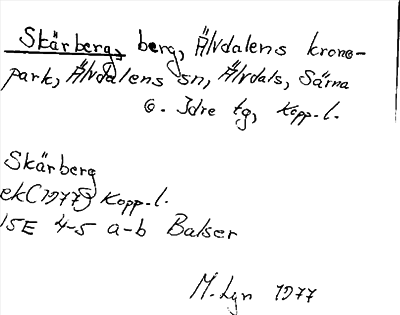 Skärberg, berg, Älvdalens krono-
park, Älvdalens sn, Älvdals, Särna
o. Idre tg, Kopp.l.
Skärberg
ek(1977) Kopp.l.
15E 4-5 a-b Balser
M. Lyn 1977